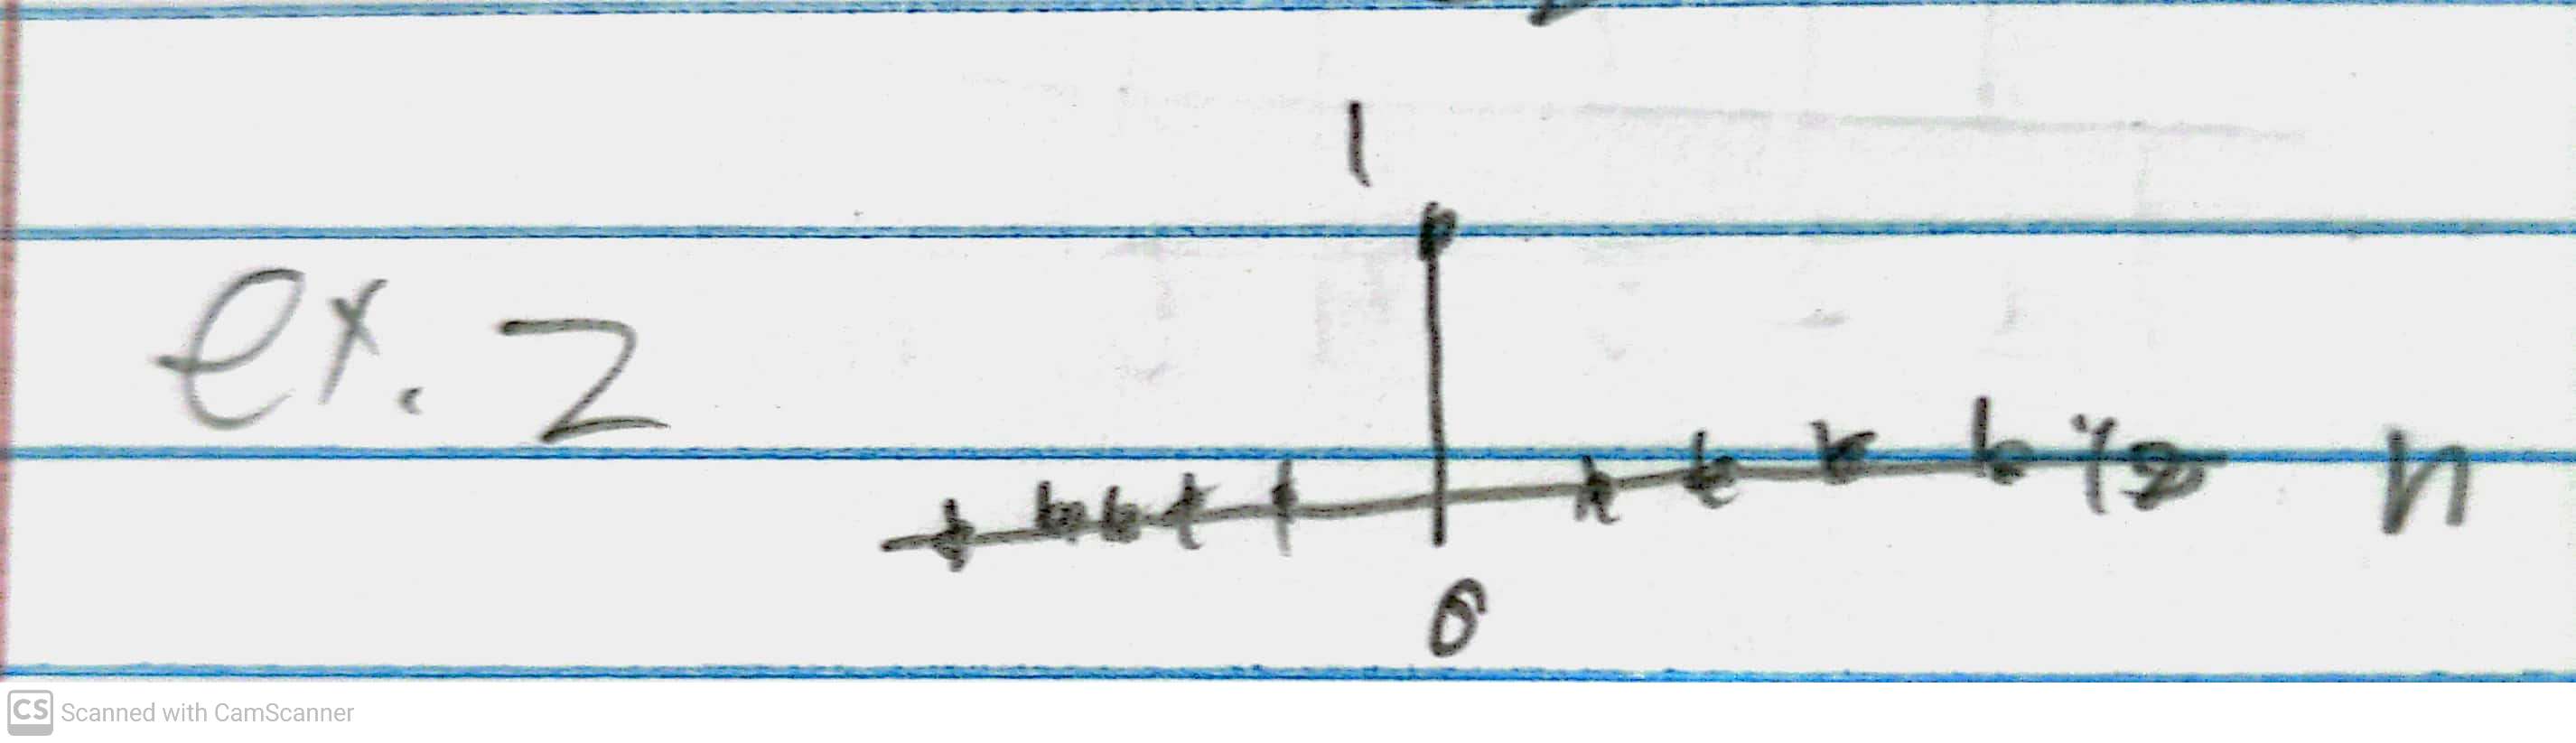 1
ex. 2
n
0
CS Scanned with CamScanner